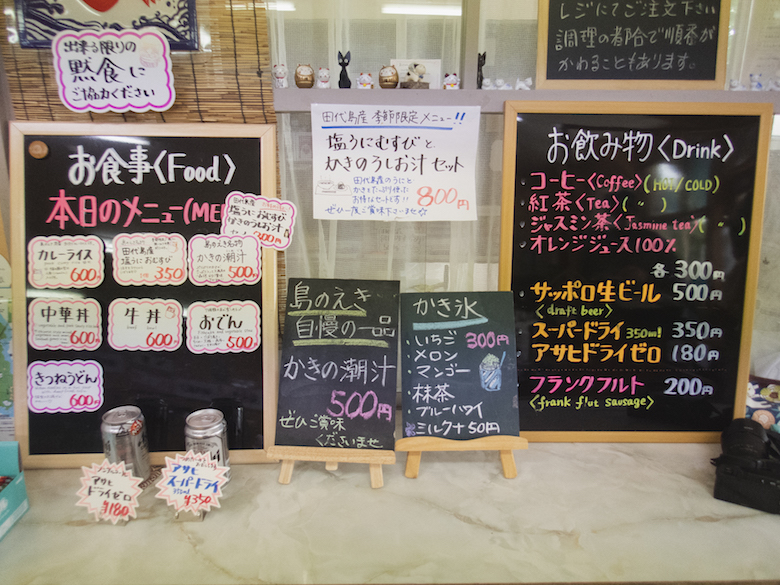 出来る限りの
黙食に
ご協力ください
レジにてご注文下さい
調理の都合で順番が
かわることもあります。
お食事〈Food〉
本日のメニュー(ME
田代島産
塩うにおむすび
かきのうしお汁
カレーライス
600円
田代島産
塩うにおむすび
350円
島のえき名物
かきの潮汁
500円
中華丼
600円
牛丼
600円
おでん
500円
きつねうどん
600円
田代島産 季節限定メニュー!!
塩うにむすびと
かきのうしお汁セット
田代島産のうにと
かきをたっぷり使った
お得なセットです!!
ぜひ一度ご賞味下さいませ
800円
島のえき
自慢の一品
かきの潮汁
500円
ぜひご賞味
くださいませ
かき氷
・いちご 300円
・メロン
・マンゴー
・抹茶
・ブルーハワイ
・ミルク+50円
お飲み物〈Drink〉
・コーヒー〈Coffee〉(HOT/COLD)
・紅茶〈Tea〉( 〃 )
・ジャスミン茶〈Jasmine tea〉( 〃 )
・オレンジジュース100%
各300円
・サッポロ生ビール 500円
〈draft beer〉
・スーパードライ 350ml 350円
・アサヒドライゼロ 180円
・フランクフルト 200円
〈frank f'ut sausage〉
アサヒ
ドライゼロ
¥180
アサヒ
スーパードライ
350ml ¥350